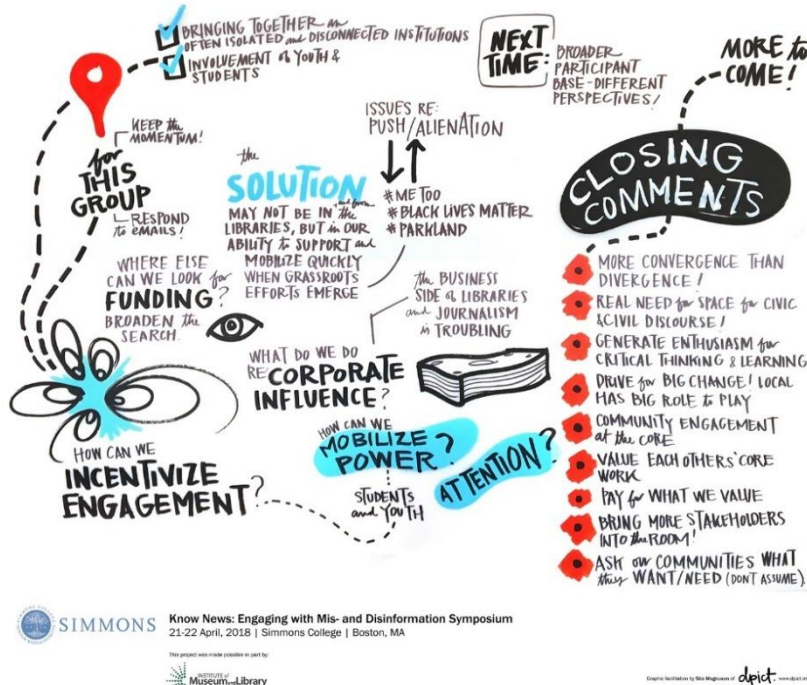 BRINGING TOGETHER an
OFTEN ISOLATED and DISCONNECTED INSTITUTIONS
INVOLVEMENT of YOUTH &
STUDENTS
NEXT
TIME:
BROADER
PARTICIPANT
BASE-DIFFERENT
PERSPECTIVES!
MORE to
COME!
KEEP the
MOMENTUM!
for
THIS
GROUP
RESPOND
to EMAILS!
ISSUES RE:
PUSH/ALIENATION
#METOO
#BLACK LIVES MATTER
#PARKLAND
the
SOLUTION
MAY NOT BE IN and from the
LIBRARIES, BUT in OUR
ABILITY to SUPPORT and
MOBILIZE QUICKLY
WHEN GRASSROOTS
EFFORTS EMERGE
WHERE ELSE
CAN WE LOOK for
FUNDING?
BROADEN the
SEARCH.
the BUSINESS
SIDE of LIBRARIES
and JOURNALISM
is TROUBLING
WHAT DO WE DO
RE: CORPORATE
INFLUENCE?
HOW CAN WE
MOBILIZE
POWER?
ATTENTION?
STUDENTS
and YOUTH
HOW CAN WE
INCENTIVIZE
ENGAGEMENT?
CLOSING
COMMENTS
MORE CONVERGENCE THAN
DIVERGENCE!
REAL NEED for SPACE for CIVIC
& CIVIL DISCOURSE!
GENERATE ENTHUSIASM for
CRITICAL THINKING & LEARNING
DRIVE for BIG CHANGE! LOCAL
HAS BIG ROLE to PLAY
COMMUNITY ENGAGEMENT
at the CORE
VALUE EACH OTHERS' CORE
WORK
PAY for WHAT WE VALUE
BRING MORE STAKEHOLDERS
INTO the ROOM!
ASK our COMMUNITIES WHAT
they WANT/NEED (DON'T ASSUME).
SIMMONS
Know News: Engaging with Mis- and Disinformation Symposium
21-22 April, 2018 | Simmons College | Boston, MA
This project was made possible in part by:
INSTITUTE of
Museum and Library
Graphic facilitation by Sita Magnuson of dpict.